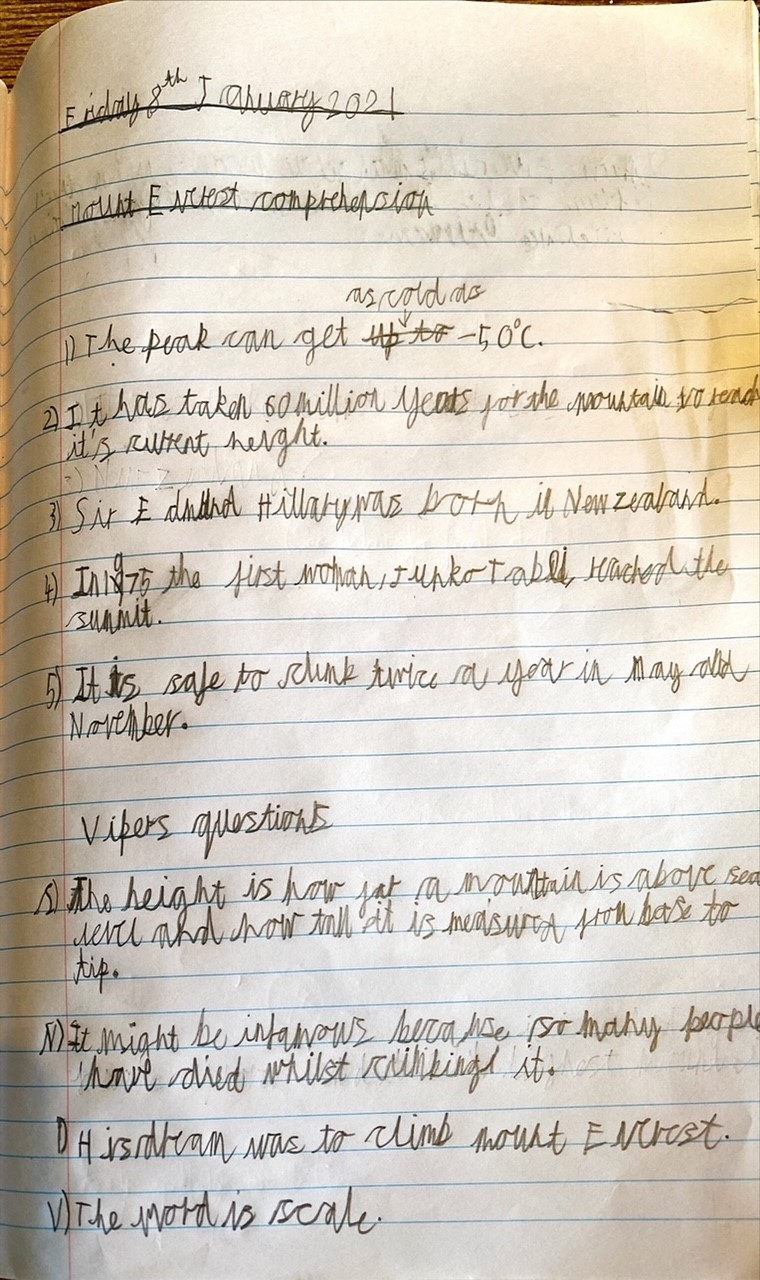 Friday 8th January 2021
Mount Everest comprehension
as cold as
1) The peak can get up to -50°C.
2) It has taken 60 million years for the mountain to reach
it's current height.
3) Sir Edmund Hillary was born in New zealand.
4) In 1975 the first woman, Junko Tabei, reached the
summit.
5) It is safe to climb twice a year in May and
November.
Vipers questions
S) The height is how far a mountain is above sea
level and how tall it is measured from base to
tip.
N) It might be infamous because so many people
have died whilst climbing it.
I) His dream was to climb mount Everest.
V) The word is scale.